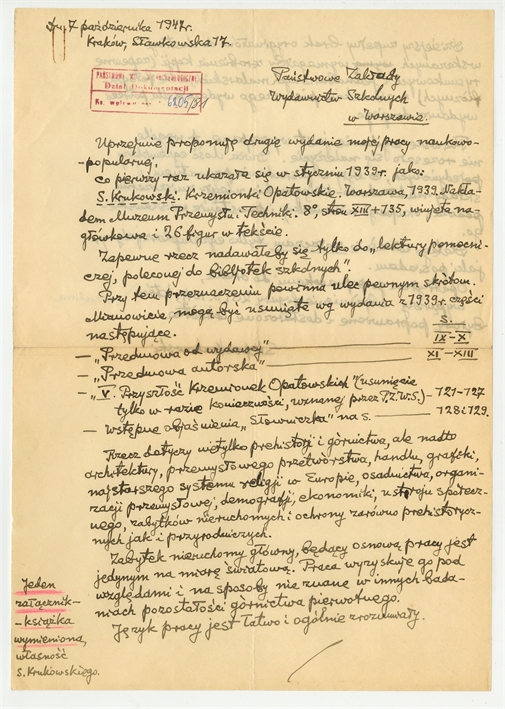 7 października 1947r.
Kraków, Sławkowska 17.
Dział Dokumentacji
Państwowe Zakłady
Wydawnictw Szkolnych
w Warszawie.
Uprzejmie proponuję drugie wydanie mojej pracy naukowo-
-popularnej,
co pierwszy raz ukazała się w styczniu 1939r. jako:
S. Krukowski. Krzemionki Opatowskie. Warszawa, 1939. Nakła-
dem Muzeum Przemysłu i Techniki. 8°, stron XIII + 135, winjeta na-
główkowa i 26 figur w tekście.
Zapewne rzecz nadawałaby się tylko do „lektury pomocni-
czej, poleconej do bibljotek szkolnych".
Przy tem przeznaczeniu powinna ulec pewnym skrótom.
Mianowicie, mogą być usunięte wg wydania z 1939r. części
następujące. S.
— „Przedmowa od wydawcy" IX – X
— „Przedmowa autorska" XI – XIII
— „V. Przyszłość Krzemionek Opatowskich" (usunięcie
tylko w razie konieczności, uznanej przez P.Z.W.S.) – 121–127
— wstępne objaśnienia „Słowniczka" na s. 128 i 129.
Rzecz dotyczy nietylko prehistorji i górnictwa, ale nadto
architektury, przemysłowego przetwórstwa, handlu, grafiki,
najstarszego systemu religji w Europie, osadnictwa, organi-
zacji przemysłowej, demografji, ekonomiki, ustroju społecz-
nego, zabytków nieruchomych i ochrony zarówno prehistorycz-
nych jak i przyrodniczych.
Zabytek nieruchomy główny, będący osnową pracy jest
jedynym na miarę światową. Praca wyzyskuje go pod
względami i na sposoby nie znane w innych bada-
niach pozostałości górnictwa pierwotnego.
Język pracy jest łatwo i ogólnie zrozumiały.
Jeden
załącznik–
–książka
wymieniona,
własność
S. Krukowskiego.